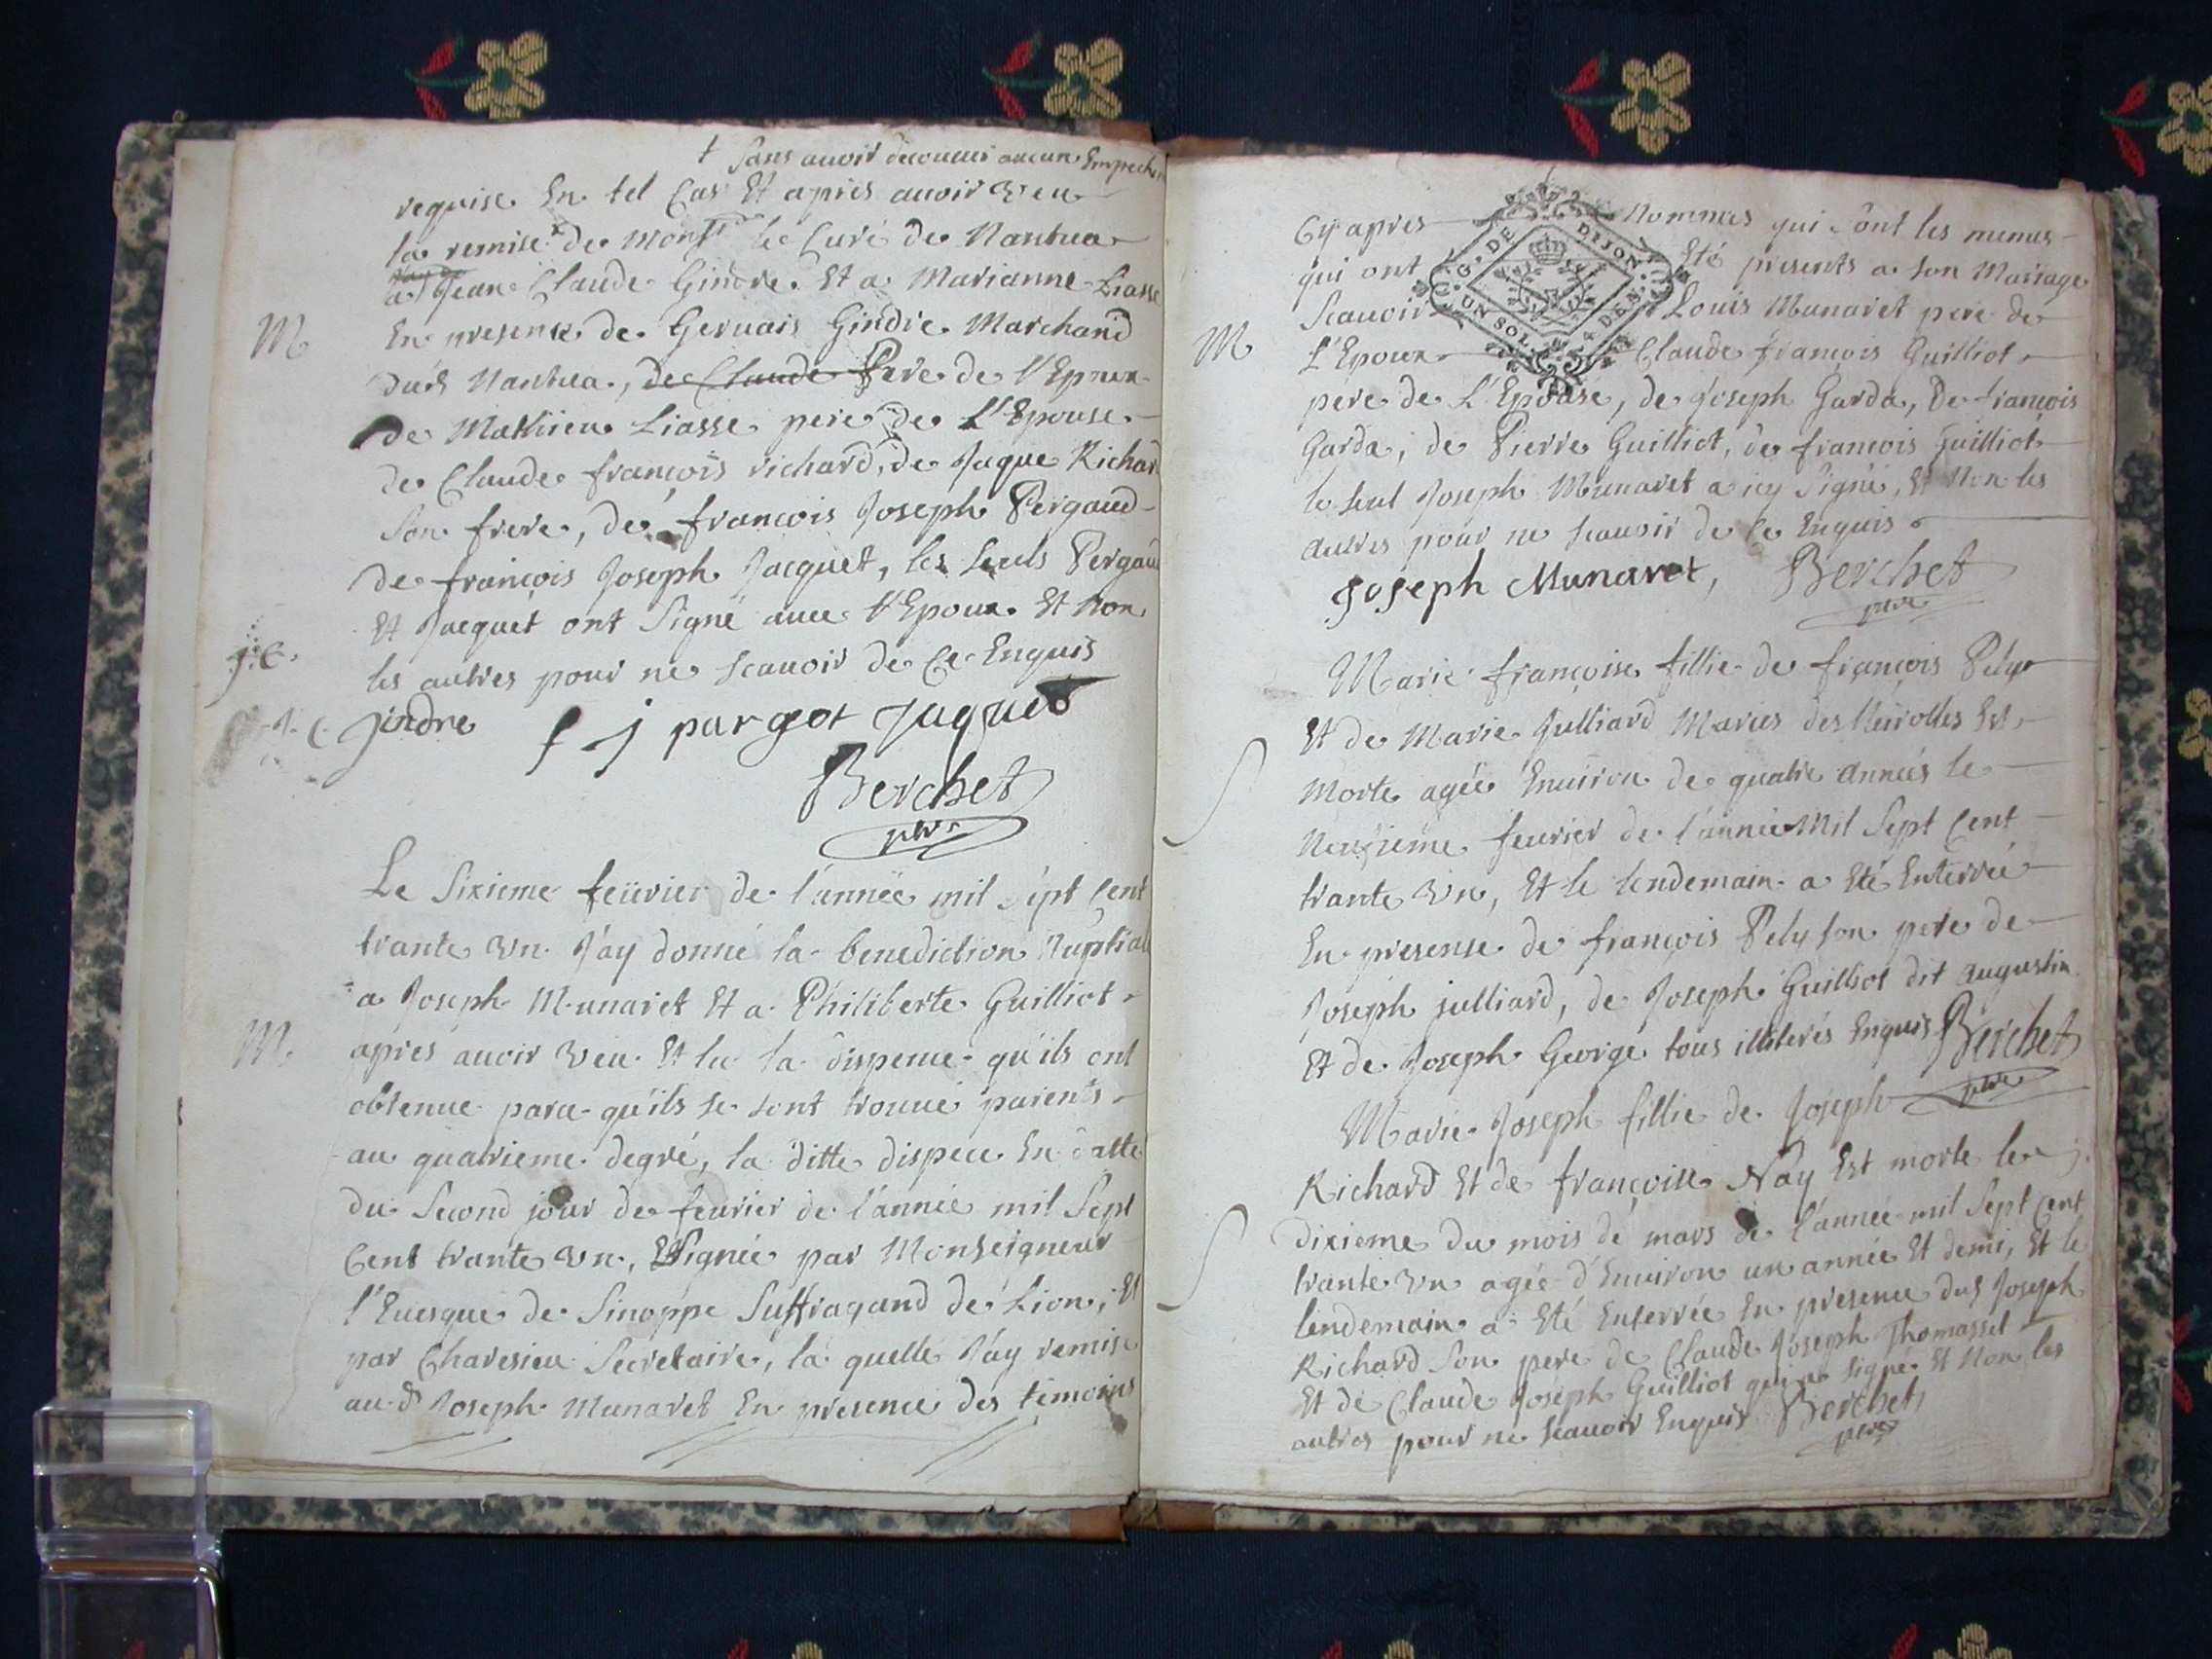 † sans auoir decouuer aucun Empech
requise En tel Cas Et apres auoir Veu
la remise de Monsr le Curé de Nantua
a Jean Claude Gindre. Et a Marianne Liasse
M
En presence de Gervais Gindre Marchand
dud Nantua, de Claude Pere de l'Epoux
de Mathieu Liasse pere de L'Epouse
de Claude françois richard, de Jaque Richard
son frere, de françois Joseph Pergaud
de françois Joseph Jacquet, les seuls Pergaud
Et Jacquet ont Signé auec l'Epoux Et Non
j:C.
les autres pour ne scauoir de Ce Enquis
J. C Jindre f j pargot Jaquet
Berchet
ptre
Le Sixieme feüvrier de l'année mil sept Cent
trante Vn J'ay donné la benediction Nuptial
a Joseph Munaret Et a Philiberte Guilliot
M.
apres auoir Veu Et lu la dispence qu'ils ont
obtenue parce qu'ils se sont trouué parents
au quatrieme degré, la ditte dispece En datte
du Second jour de feurier de l'année mil Sept
Cent trante Vn, Signée par Monseigneur
l'Euesque de Sinoppe Suffragand de Lion, Et
par Charesieu Secretaire, la quelle J'ay remise
au d Joseph Munaret En presence des temoins
Cy apres Nommés qui sont les memes
qui ont Eté presents a son Mariage
G. DE DIJON
UN SOL 4 DEN.
Scauoir Louis Munaret pere de
M
L'Epoux Claude françois Guilliot
pere de L'Epouse, de Joseph Garda, De francois
Garda, de Pierre Guilliot, de francois Guilliot
le seul Joseph Munaret a icy Signé, Et Non les
autres pour ne scauoir de ce Enquis
Joseph Munaret, Berchet
ptre
Marie françoise fillie de françois Pely
Et de Marie Julliard Maries des Neirolles Est
S
Morte agée Enuiron de quatre années le
Neufieme feurier de l'année Mil Sept Cent
trante Vn, Et le lendemain a Eté Enterrée
En presense de françois Pely son pere de
Joseph julliard, de Joseph Guilliot dit augustin
Et de Joseph George tous illiterés Enquis Berchet
ptre
Marie Joseph fillie de Joseph
Richard Et de françoise Nay Est morte le
S
dixieme du mois de mars de l'année mil Sept Cent
trante Vn agée d'Enuiron un année Et demi, Et le
lendemain a Eté Enterrée En presence dud Joseph
Richard Son pere de Claude Joseph Thomasset
Et de Claude Joseph Guilliot qui a signé Et Non les
autres pour ne scauoir Enquis Berchet
ptre